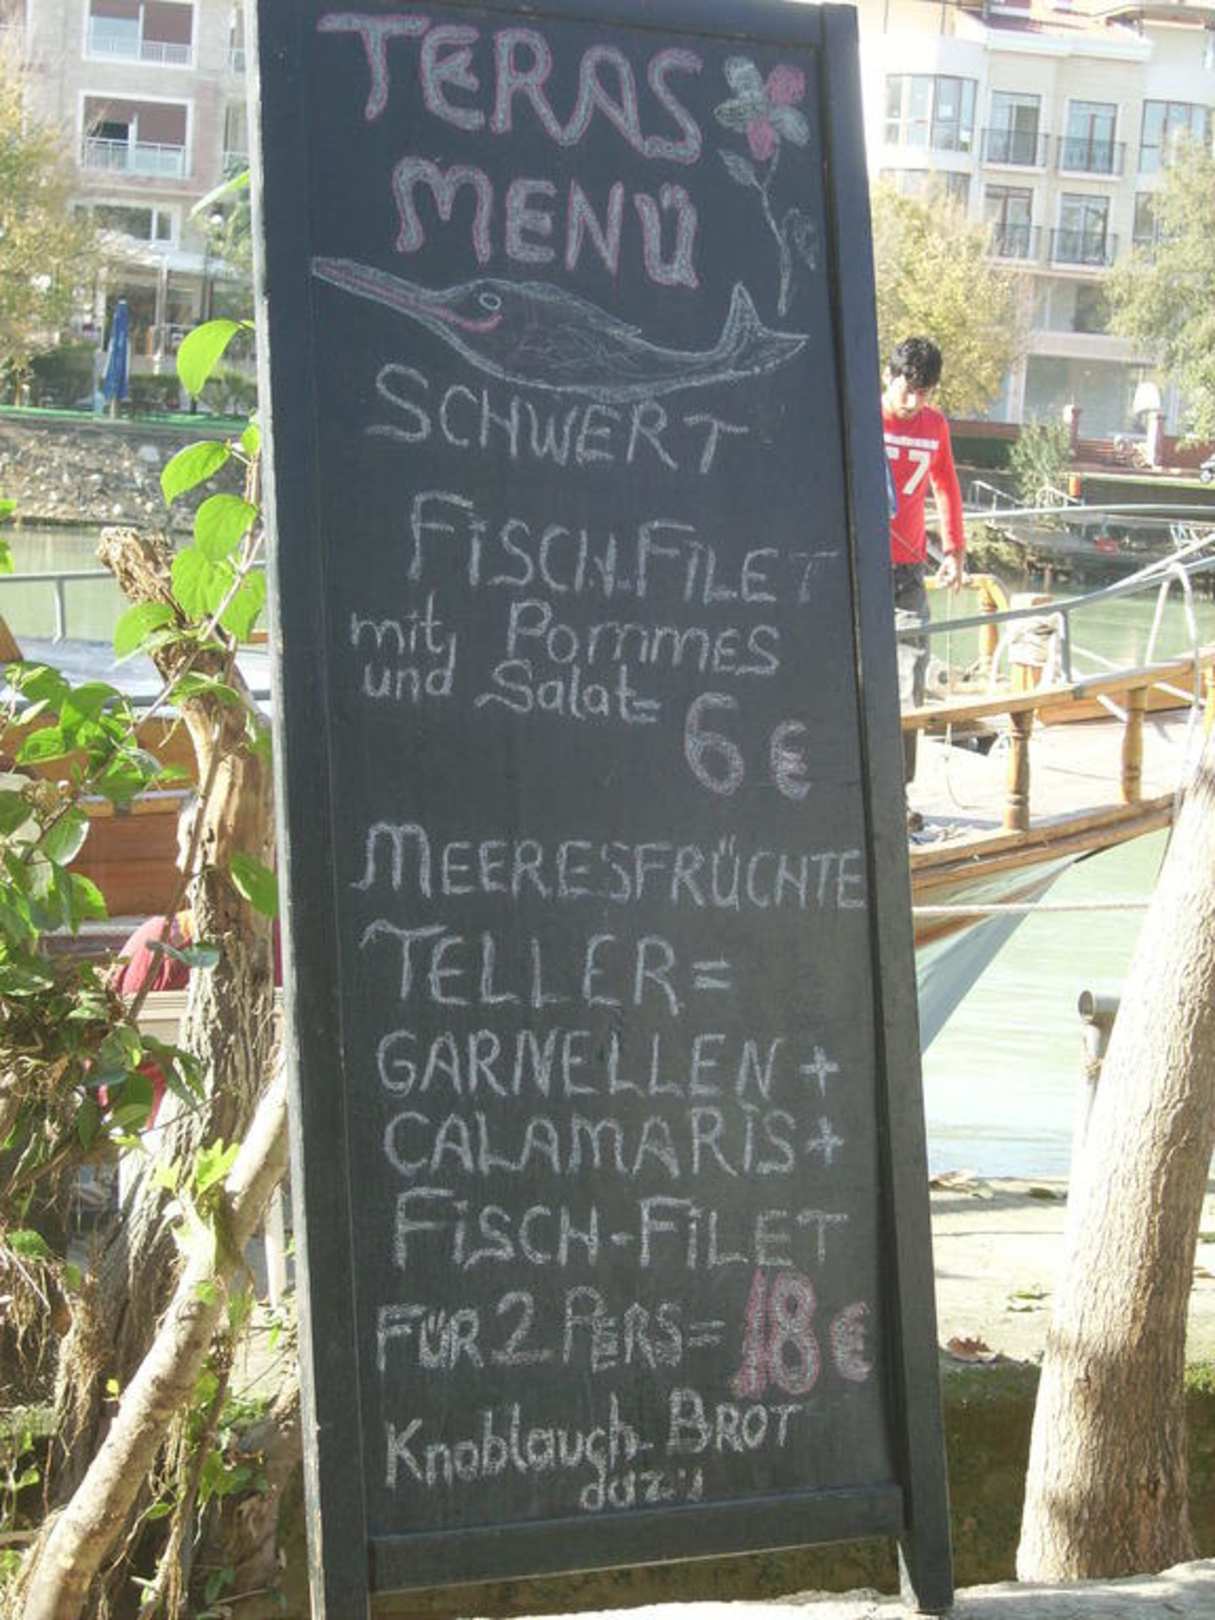 TERAS
MENÜ
SCHWERT
FISCH-FILET
mit POMMES
und Salat= 6 €
MEERESFRÜCHTE
TELLER=
GARNELLEN +
CALAMARIS +
FISCH-FILET
FÜR 2 PERS= 18 €
Knoblauch-BROT
dazu
7